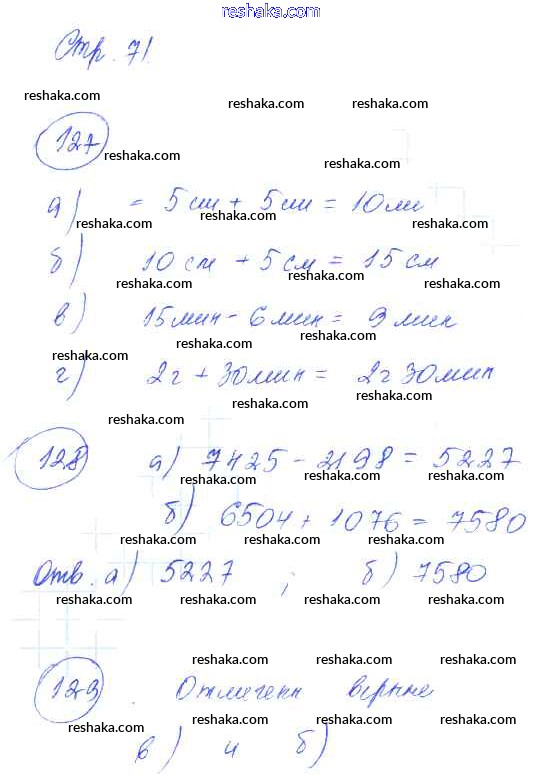 www.reshaka.com
Стр. 71
reshaka.com reshaka.com reshaka.com
127
reshaka.com reshaka.com
а) = 5 см + 5 см = 10 см
reshaka.com reshaka.com reshaka.com
б) 10 см + 5 см = 15 см
reshaka.com reshaka.com
в) 15 мин - 6 мин = 9 мин
reshaka.com reshaka.com reshaka.com
г) 2 ч + 30 мин = 2 ч 30 мин
reshaka.com reshaka.com
128 а) 7425 - 2198 = 5227
reshaka.com reshaka.com reshaka.com
б) 6504 + 1076 = 7580
reshaka.com reshaka.com
Отв. а) 5227 ; б) 7580
reshaka.com reshaka.com reshaka.com
reshaka.com reshaka.com
129. Отмечены верные
reshaka.com reshaka.com reshaka.com
в) и б)
reshaka.com reshaka.com